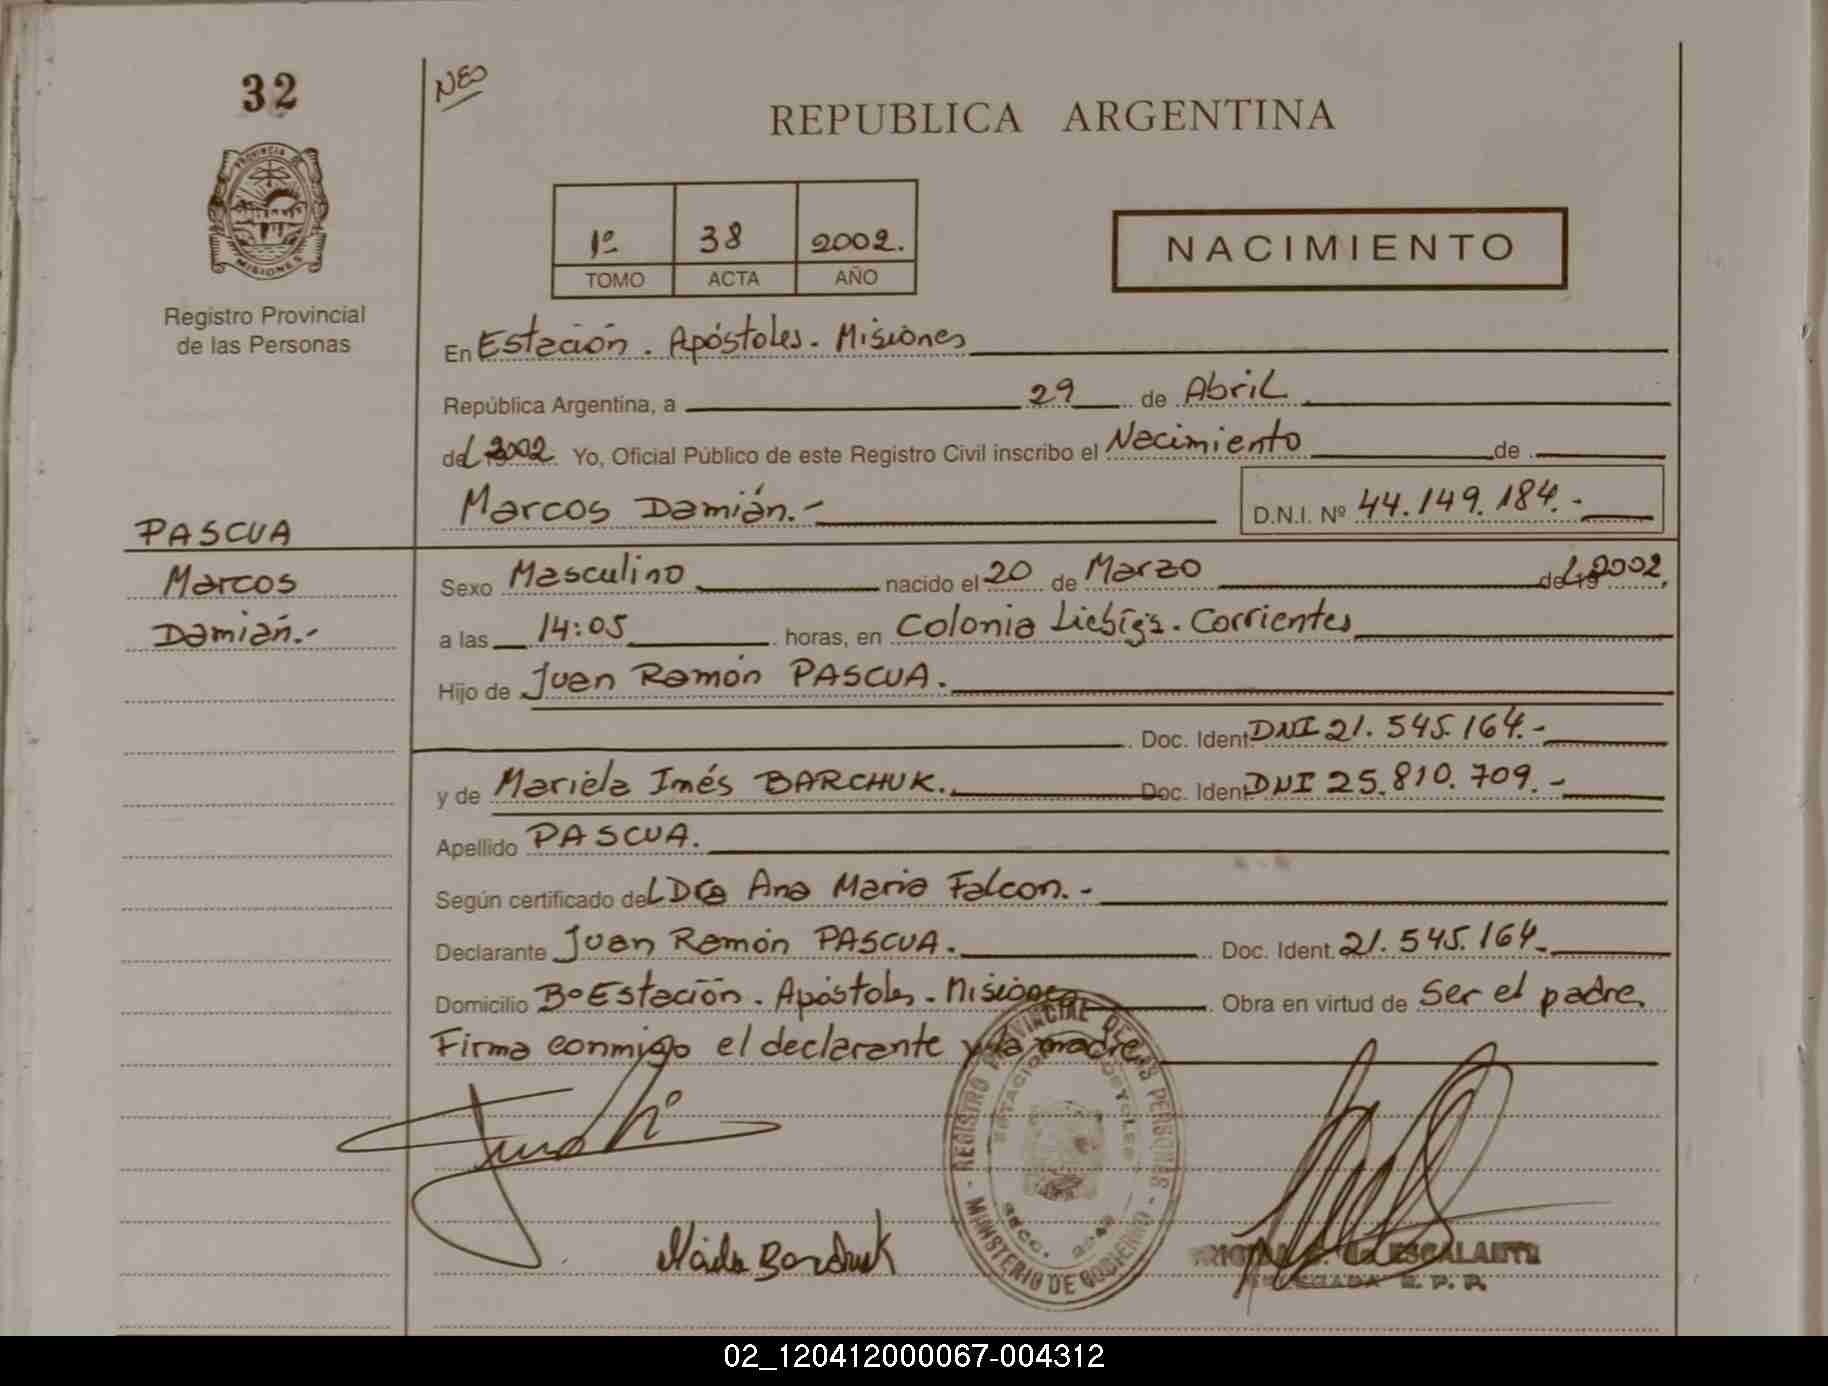 32
NEO
REPUBLICA ARGENTINA
PROVINCIA DE
MISIONES
1º 38 2002.
TOMO ACTA AÑO
NACIMIENTO
Registro Provincial
de las Personas
En Estación. Apóstoles. Misiones
República Argentina, a 29 de Abril
del 2002 Yo, Oficial Público de este Registro Civil inscribo el Nacimiento de
Marcos Damián.- D.N.I. Nº 44.149.184.-
PASCUA
Marcos
Damián.-
Sexo Masculino nacido el 20 de Marzo del 2002.
a las 14:05 horas, en Colonia Liebig's. Corrientes
Hijo de Juan Ramón PASCUA.
Doc. Ident. DNI 21.545.164.-
y de Mariela Inés BARCHUK. Doc. Ident. DNI 25.810.709.-
Apellido PASCUA.
Según certificado del Dra Ana Maria Falcon.-
Declarante Juan Ramón PASCUA. Doc. Ident. 21.545.164.
Domicilio Bº Estación. Apóstoles. Misiones Obra en virtud de Ser el padre.
Firma conmigo el declarante y la madre.
REGISTRO PROVINCIAL DE LAS PERSONAS
MINISTERIO DE GOBIERNO
Barchuk
de ESCALANTE
DELEGADA R. P. P.
02_120412000067-004312